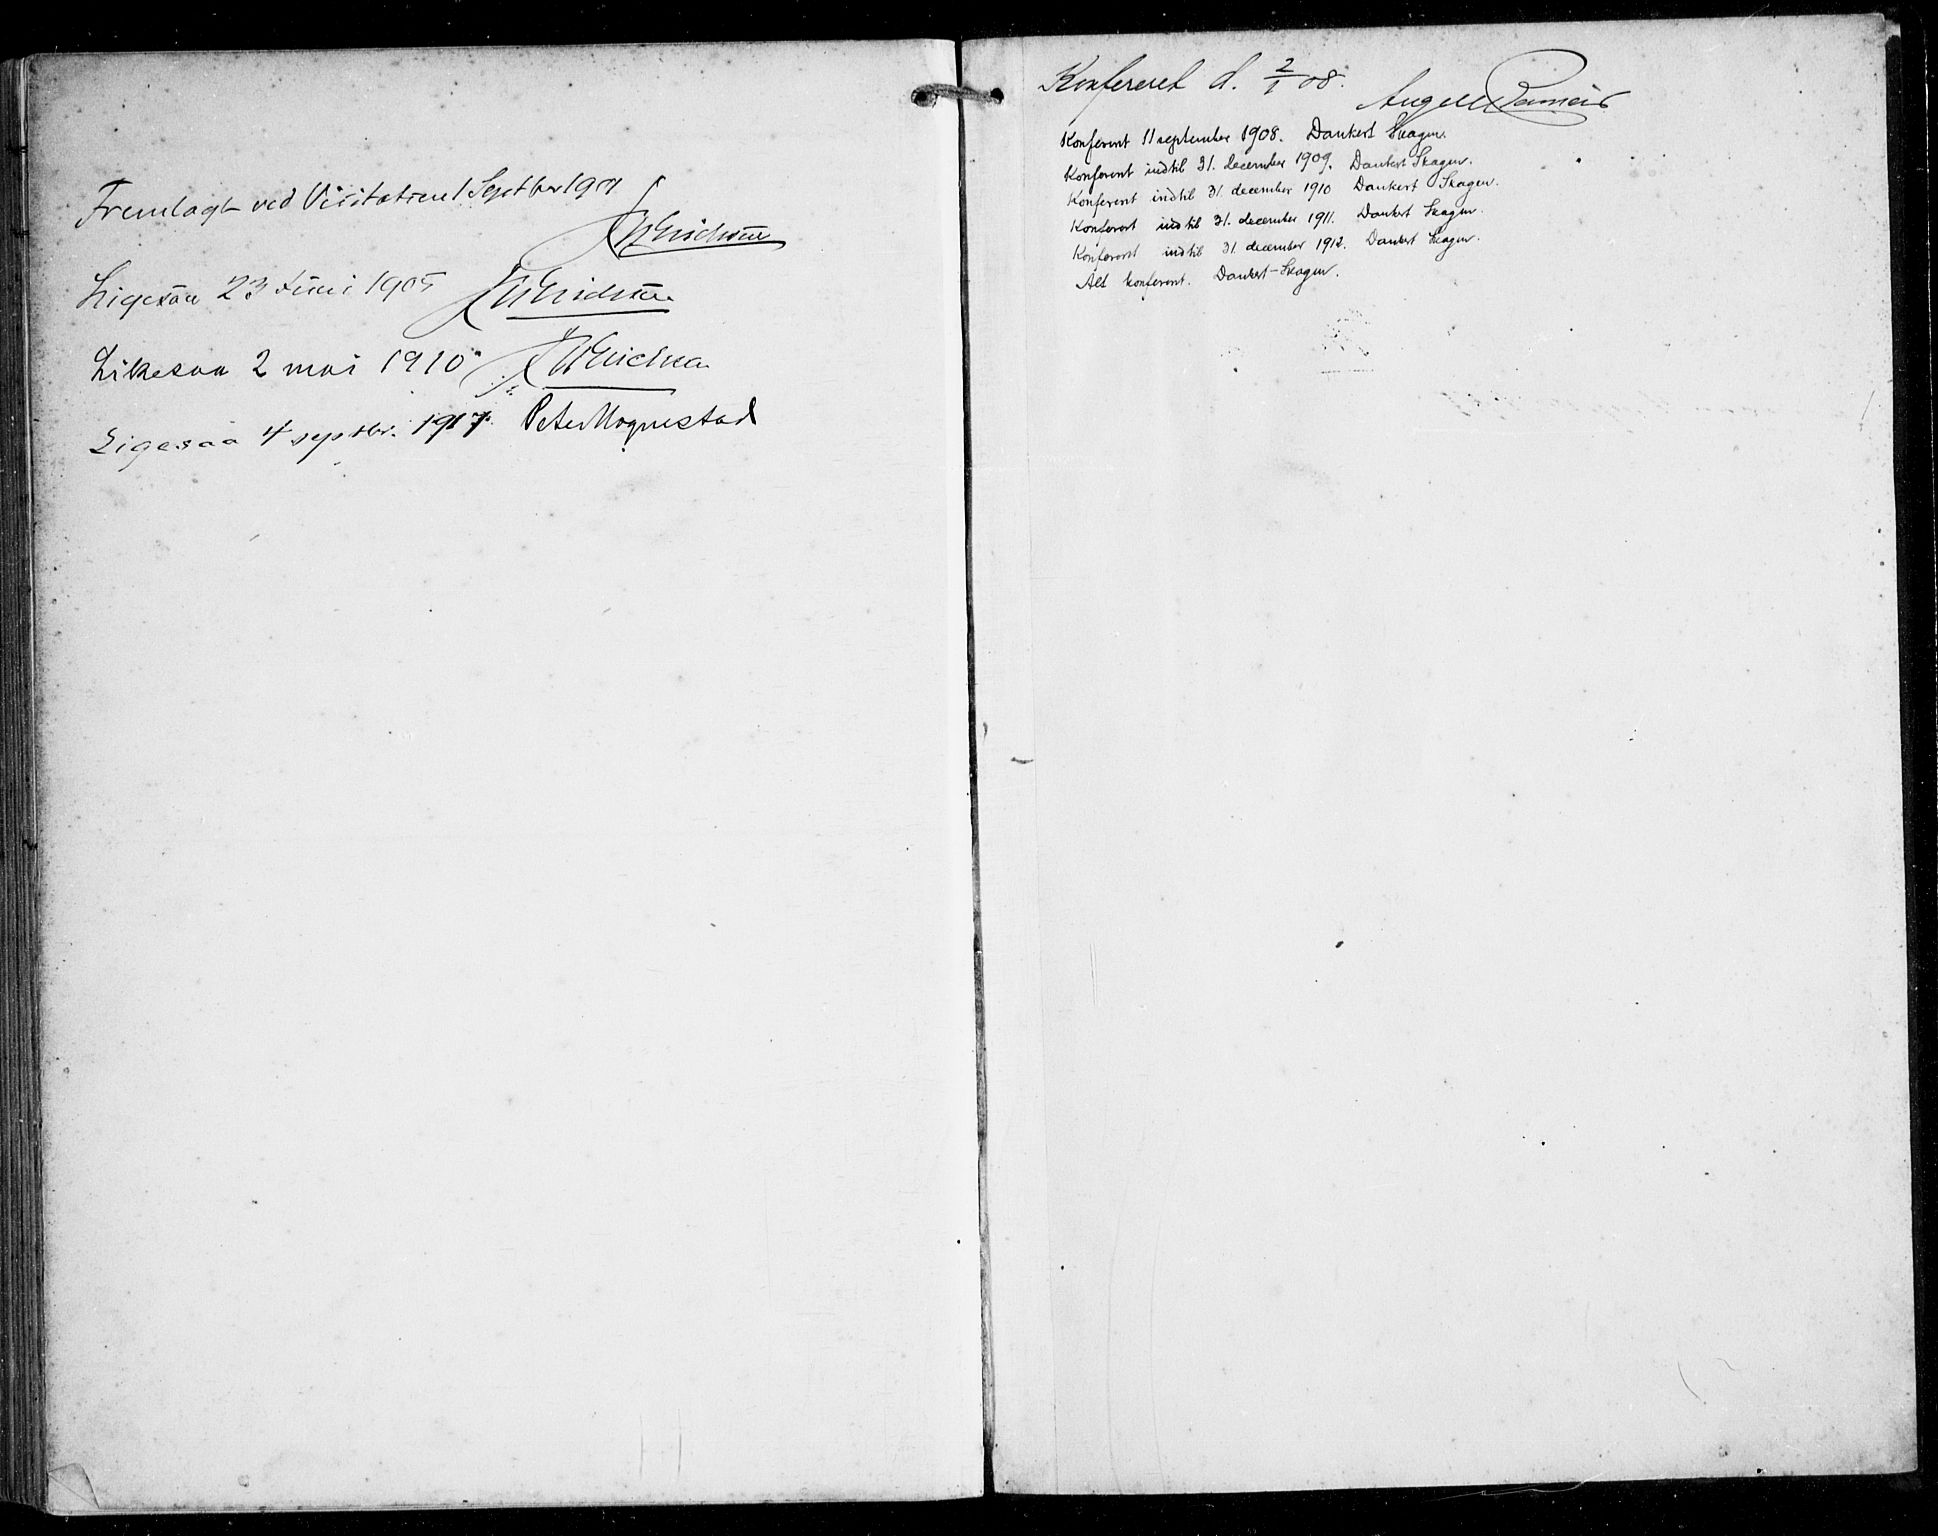 Fremlagt ved Visitatsen 1 Septbr 1901
Ligesaa 23 Juni 1905
Likesaa 2 mai 1910
Ligesaa 4 septbr. 1917. Peter Hognestad
Konfereret d. 2/1 08.
Konferert 11 september 1908. Dankert Skagen.
Konferert indtil 31. december 1909. Dankert Skagen.
Konferert indtil 31. december 1910 Dankert Skagen.
Konferert indtil 31. december 1911. Dankert Skagen.
Konferert indtil 31. december 1912. Dankert Skagen.
Alt konferert. Dankert Skagen.